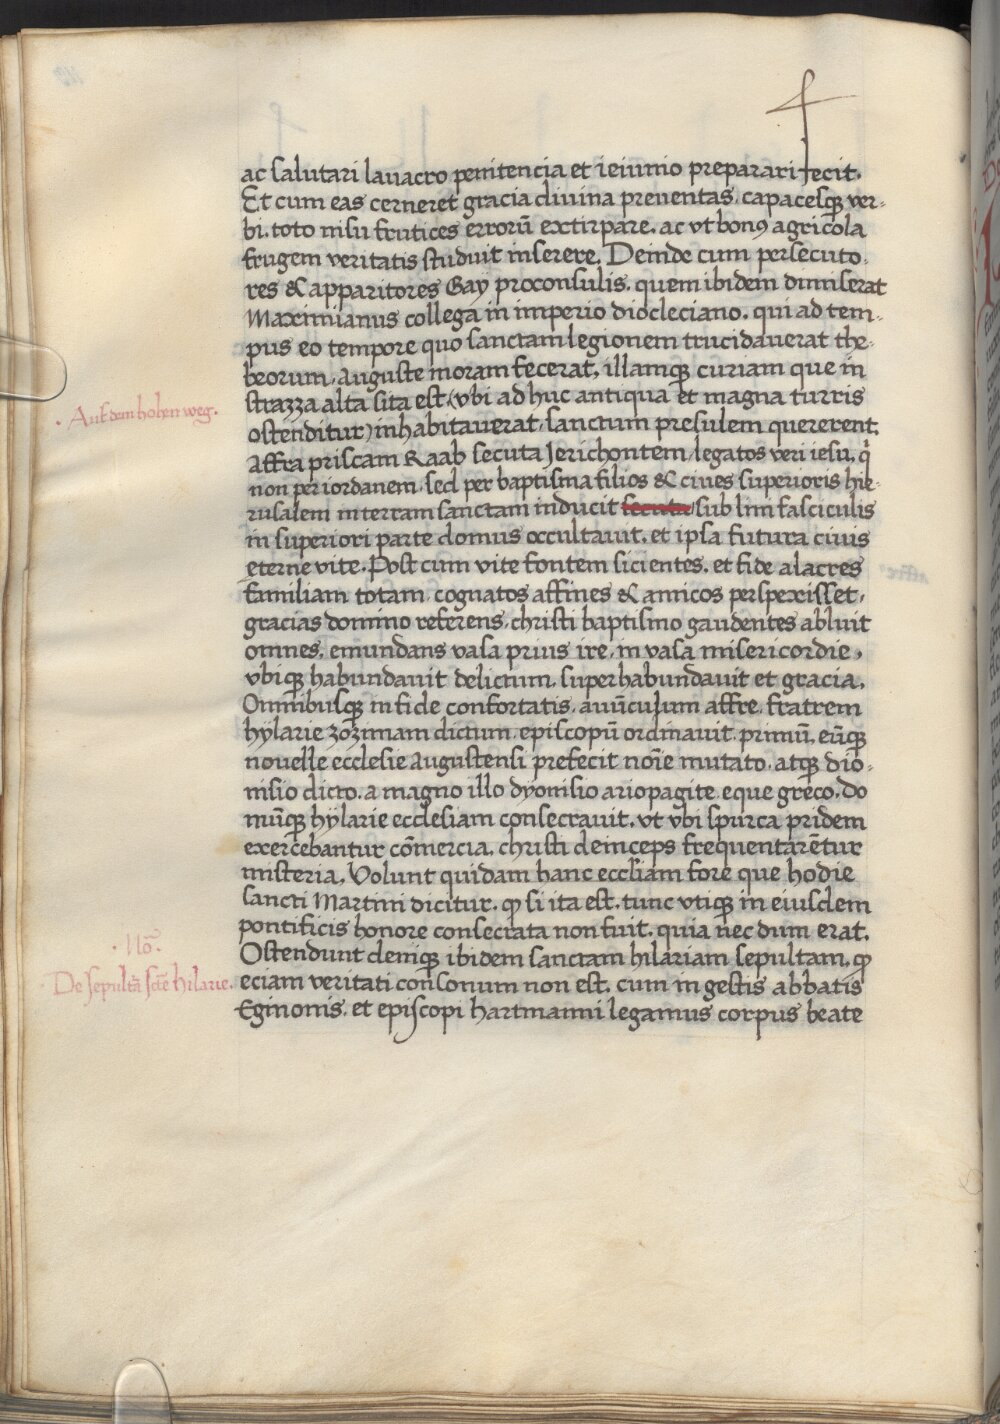 ac salutari lauacro penitencia et ieiunio preparari fecit.
Et cum eas cerneret gracia diuina preuentas, capacesqꝫ ver-
bi. toto nisu frutices errorū extirpare. ac vt bonꝰ agricola
frugem veritatis studuit inserere. Deinde cum persecuto-
res & apparitores Gay proconsulis. quem ibidem dimiserat
Maximianus collega in imperio diocleciano. qui ad tem-
pus eo tempore quo sanctam legionem trucidauerat the-
beorum, auguste moram fecerat, illamqꝫ curiam que in
strazza alta sita est (vbi ad huc antiqua et magna turris
· Auf dem hohen weg.
ostenditur) inhabitauerat, sanctum presulem quererent,
Affra priscam Raab secuta Jerichontem, legatos veri iesu, q̇
non per iordanem, sed per baptisma filios & ciues superioris hie-
rusalem in terram sanctam inducit secuta sub lini fasciculis
in superiori parte domus occultauit. et ipsa futura ciuis
eterne vite. Post cum vite fontem sicientes. et fide alacres
familiam totam, cognatos affines & amicos perspexisset,
gracias domino referens, christi baptismo gaudentes abluit
omnes, emundans vasa prius ire, in vasa misericordie,
vbiqꝫ habundauit delictum, superhabundauit et gracia.
Omnibusqꝫ in fide confortatis, auūculum affre, fratrem
hÿlarie zozimam dictum, episcopū ordinauit primū, eūqꝫ
nouelle ecclesie augustensi prefecit noīe mutato, atqꝫ dio-
nisio dicto. a magno illo dyonisio ariopagite eque greco. Do
mūqꝫ hÿlarie ecclesiam consecrauit. vt vbi spurca pridem
exercebantur cōmercia, christi deinceps frequentarētur
misteria. Volunt quidam hanc eccl'iam fore que hodie
sancti Martini dicitur. ꝙ si ita est. tunc vtiqꝫ in eiusdem
pontificis honore consecrata non fuit. quia nec dum erat.
· No͞.
Ostendunt deniqꝫ ibidem sanctam hilariam sepultam, ꝙ
De sepultā scē hilarie.
eciam veritati consonum non est. cum in gestis abbatis
Eginonis. et episcopi hartmanni legamus corpus beate